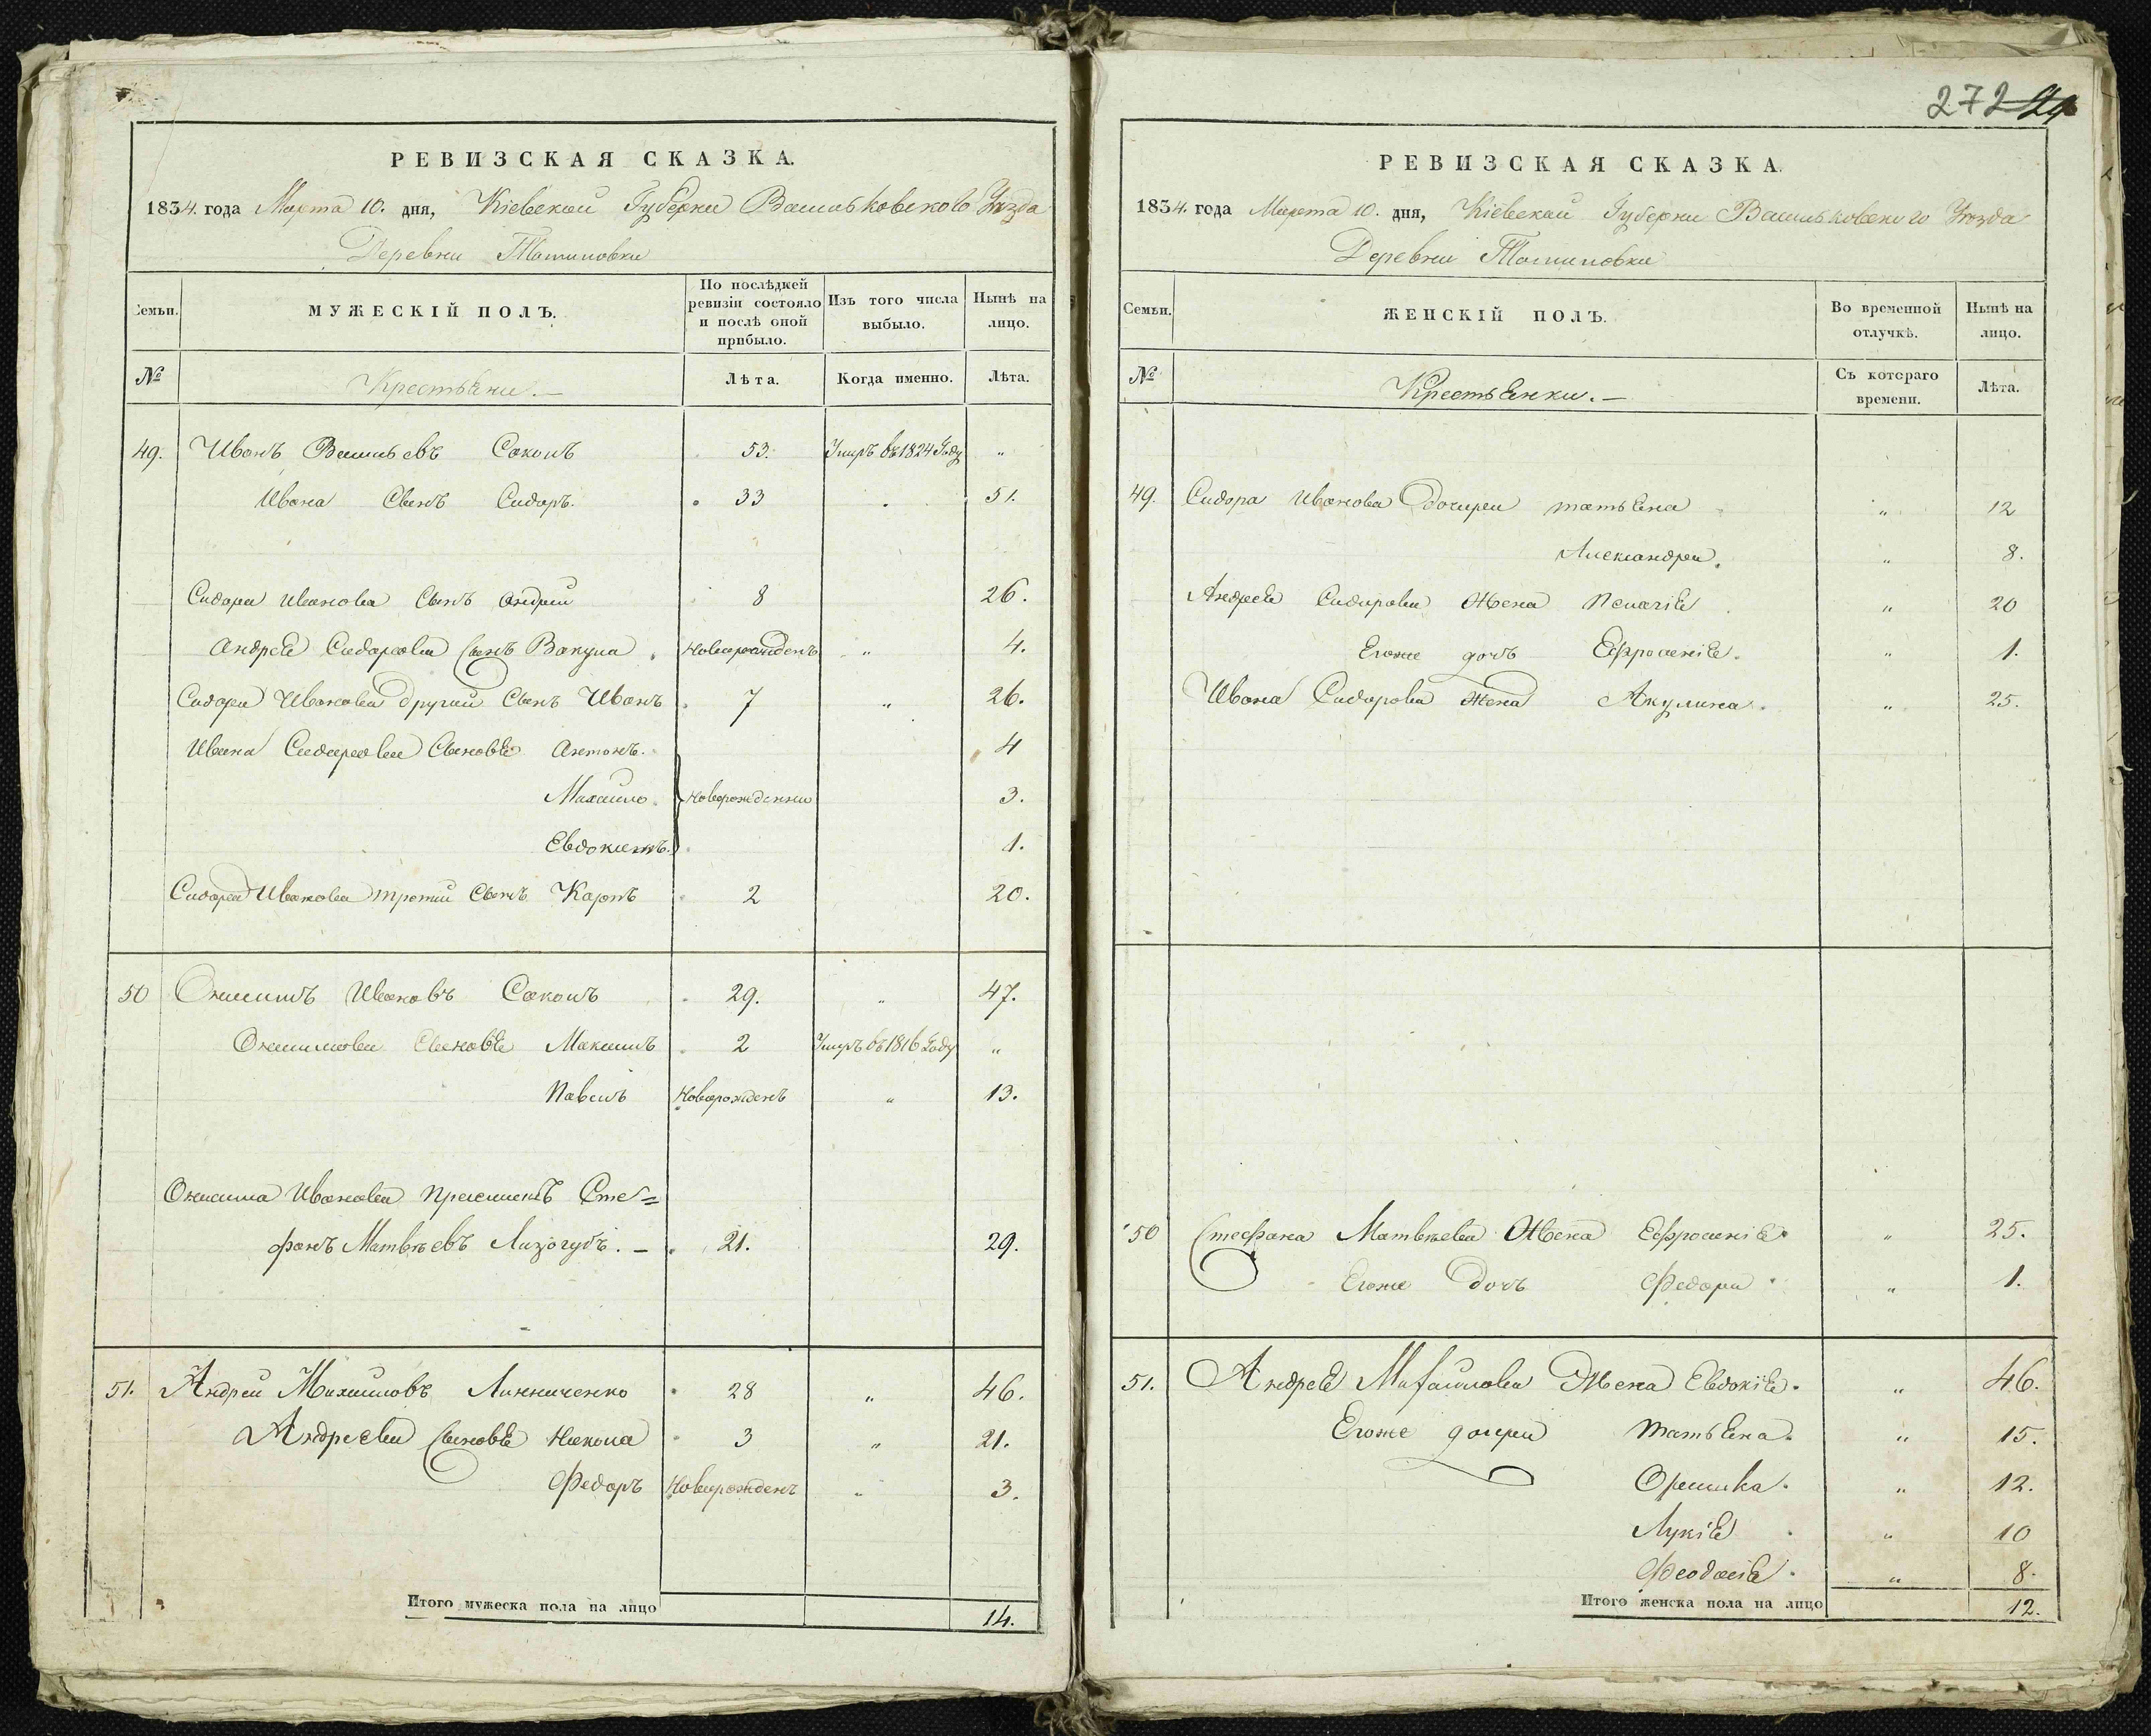 РЕВИЗСКАЯ СКАЗКА.
1834. года Марта 10. дня, Кіевской Губерни Васильковского Уѣзда
Деревни
Семьи.
МУЖЕСКІЙ ПОЛЪ.
По послѣдней ревизіи состояло и послѣ оной прибыло.
Изъ того числа выбыло.
Нынѣ на лицо.
№
Крестьяни.—
Лѣта.
Когда именно.
Лѣта.
49. Иванъ Васильевъ Соколъ 53. Умеръ въ 1824 Году "
Ивана Сынъ Сидоръ. 33 51.
Сидора Иванова Сынъ Андрей 8 26.
Андрея Сидорова Сынъ Вакула Новорожденъ " 4.
Сидора Иванова другий Сынъ Иванъ 7 " 26.
Ивана Сидорова Сыновья Антонъ. 4
Михайло. Новорожденни 3.
Евдокимъ. 1.
Сидора Иванова третий Сынъ Карпъ 2 20.
50 Онисимъ Ивановъ Соколъ 29. " 47.
Онисимова Сыновья Максимъ 2 Умеръ въ 1816 Году "
Павелъ Новорожденъ " 13.
Онисима Иванова Сте=
фанъ Матвѣевъ Лизогубъ. — 21. 29.
51. Андрей Михайловъ Линниченко 28 " 46.
Андреевы Сыновья Никола 3 " 21.
Федоръ Новорожденъ " 3.
Итого мужеска пола на лицо 14.
272 29
РЕВИЗСКАЯ СКАЗКА.
1834. года Марта 10. дня, Кіевской Губерни Васильковского Уѣзда
Деревни
Семьи.
ЖЕНСКІЙ ПОЛЪ.
Во временной отлучкѣ.
Нынѣ на лицо.
№
Крестьянки.—
Съ котораго времени.
Лѣта.
49. Сидора Иванова дочери татьяна " 12
Александра. " 8.
Андрея Сидорова Жена Пелагія " 20
Егоже дочъ Ефросинія. " 1.
Ивана Сидорова жена Акулина. " 25.
50 Стефана Матвѣева Жена Ефросинія " 25.
Егоже Дочъ Федора " 1.
51. Андрея Михайлова Жена Евдокія. " 46.
Егоже дочери татьяна. " 15.
Оришка. " 12.
Лукія " 10
Феодосія. " 8.
Итого женска пола на лицо 12.